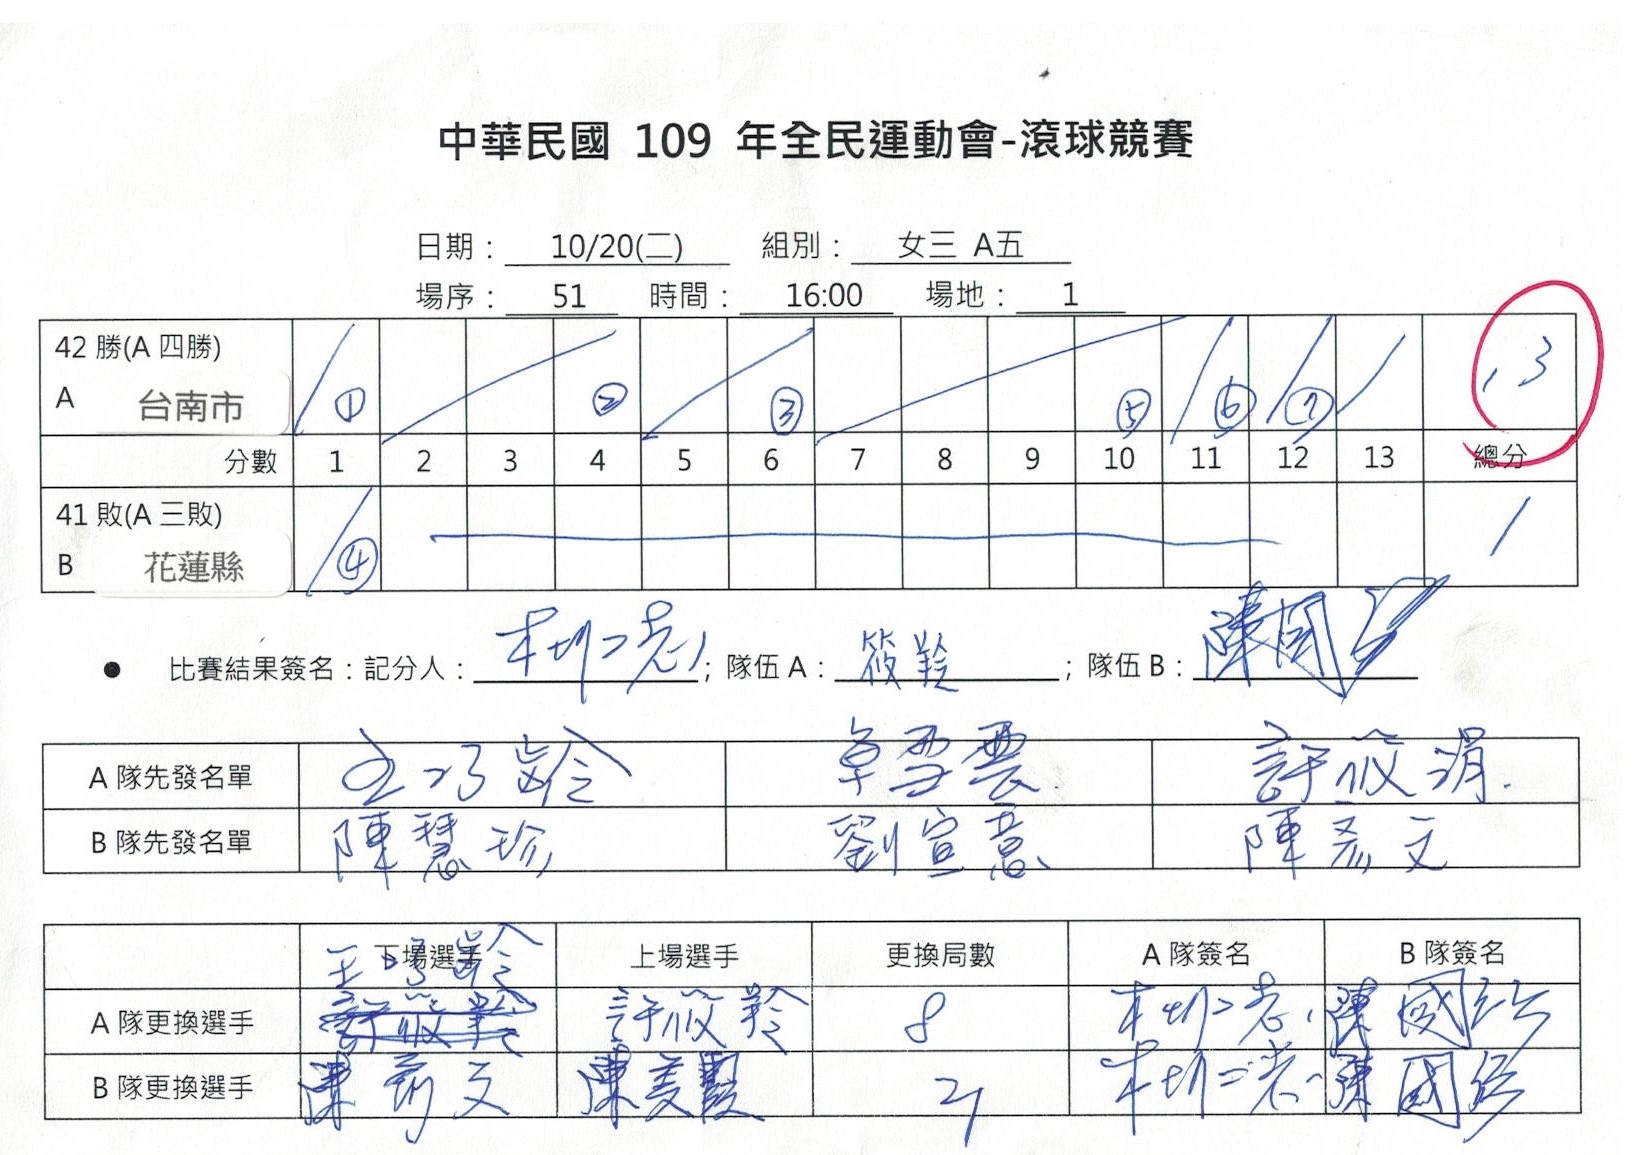 中華民國 109 年全民運動會-滾球競賽
日期： 10/20(二) 組別： 女三 A五
場序： 51 時間： 16:00 場地： 1
42 勝(A 四勝)
A 台南市 ① ② ③ ⑤ ⑥ ⑦ 13
分數 1 2 3 4 5 6 7 8 9 10 11 12 13 總分
41 敗(A 三敗)
B 花蓮縣 ④ 1
● 比賽結果簽名：記分人： ；隊伍 A： 筱羚 ；隊伍 B： 陳國
A 隊先發名單 王巧齡 卓雪雲 許筱涓
B 隊先發名單 陳慧珍 劉宣意 陳彥文
王巧齡
下場選手 上場選手 更換局數 A 隊簽名 B 隊簽名
A 隊更換選手 許筱羚 8 陳國
B 隊更換選手 陳 文 陳美霞 陳國